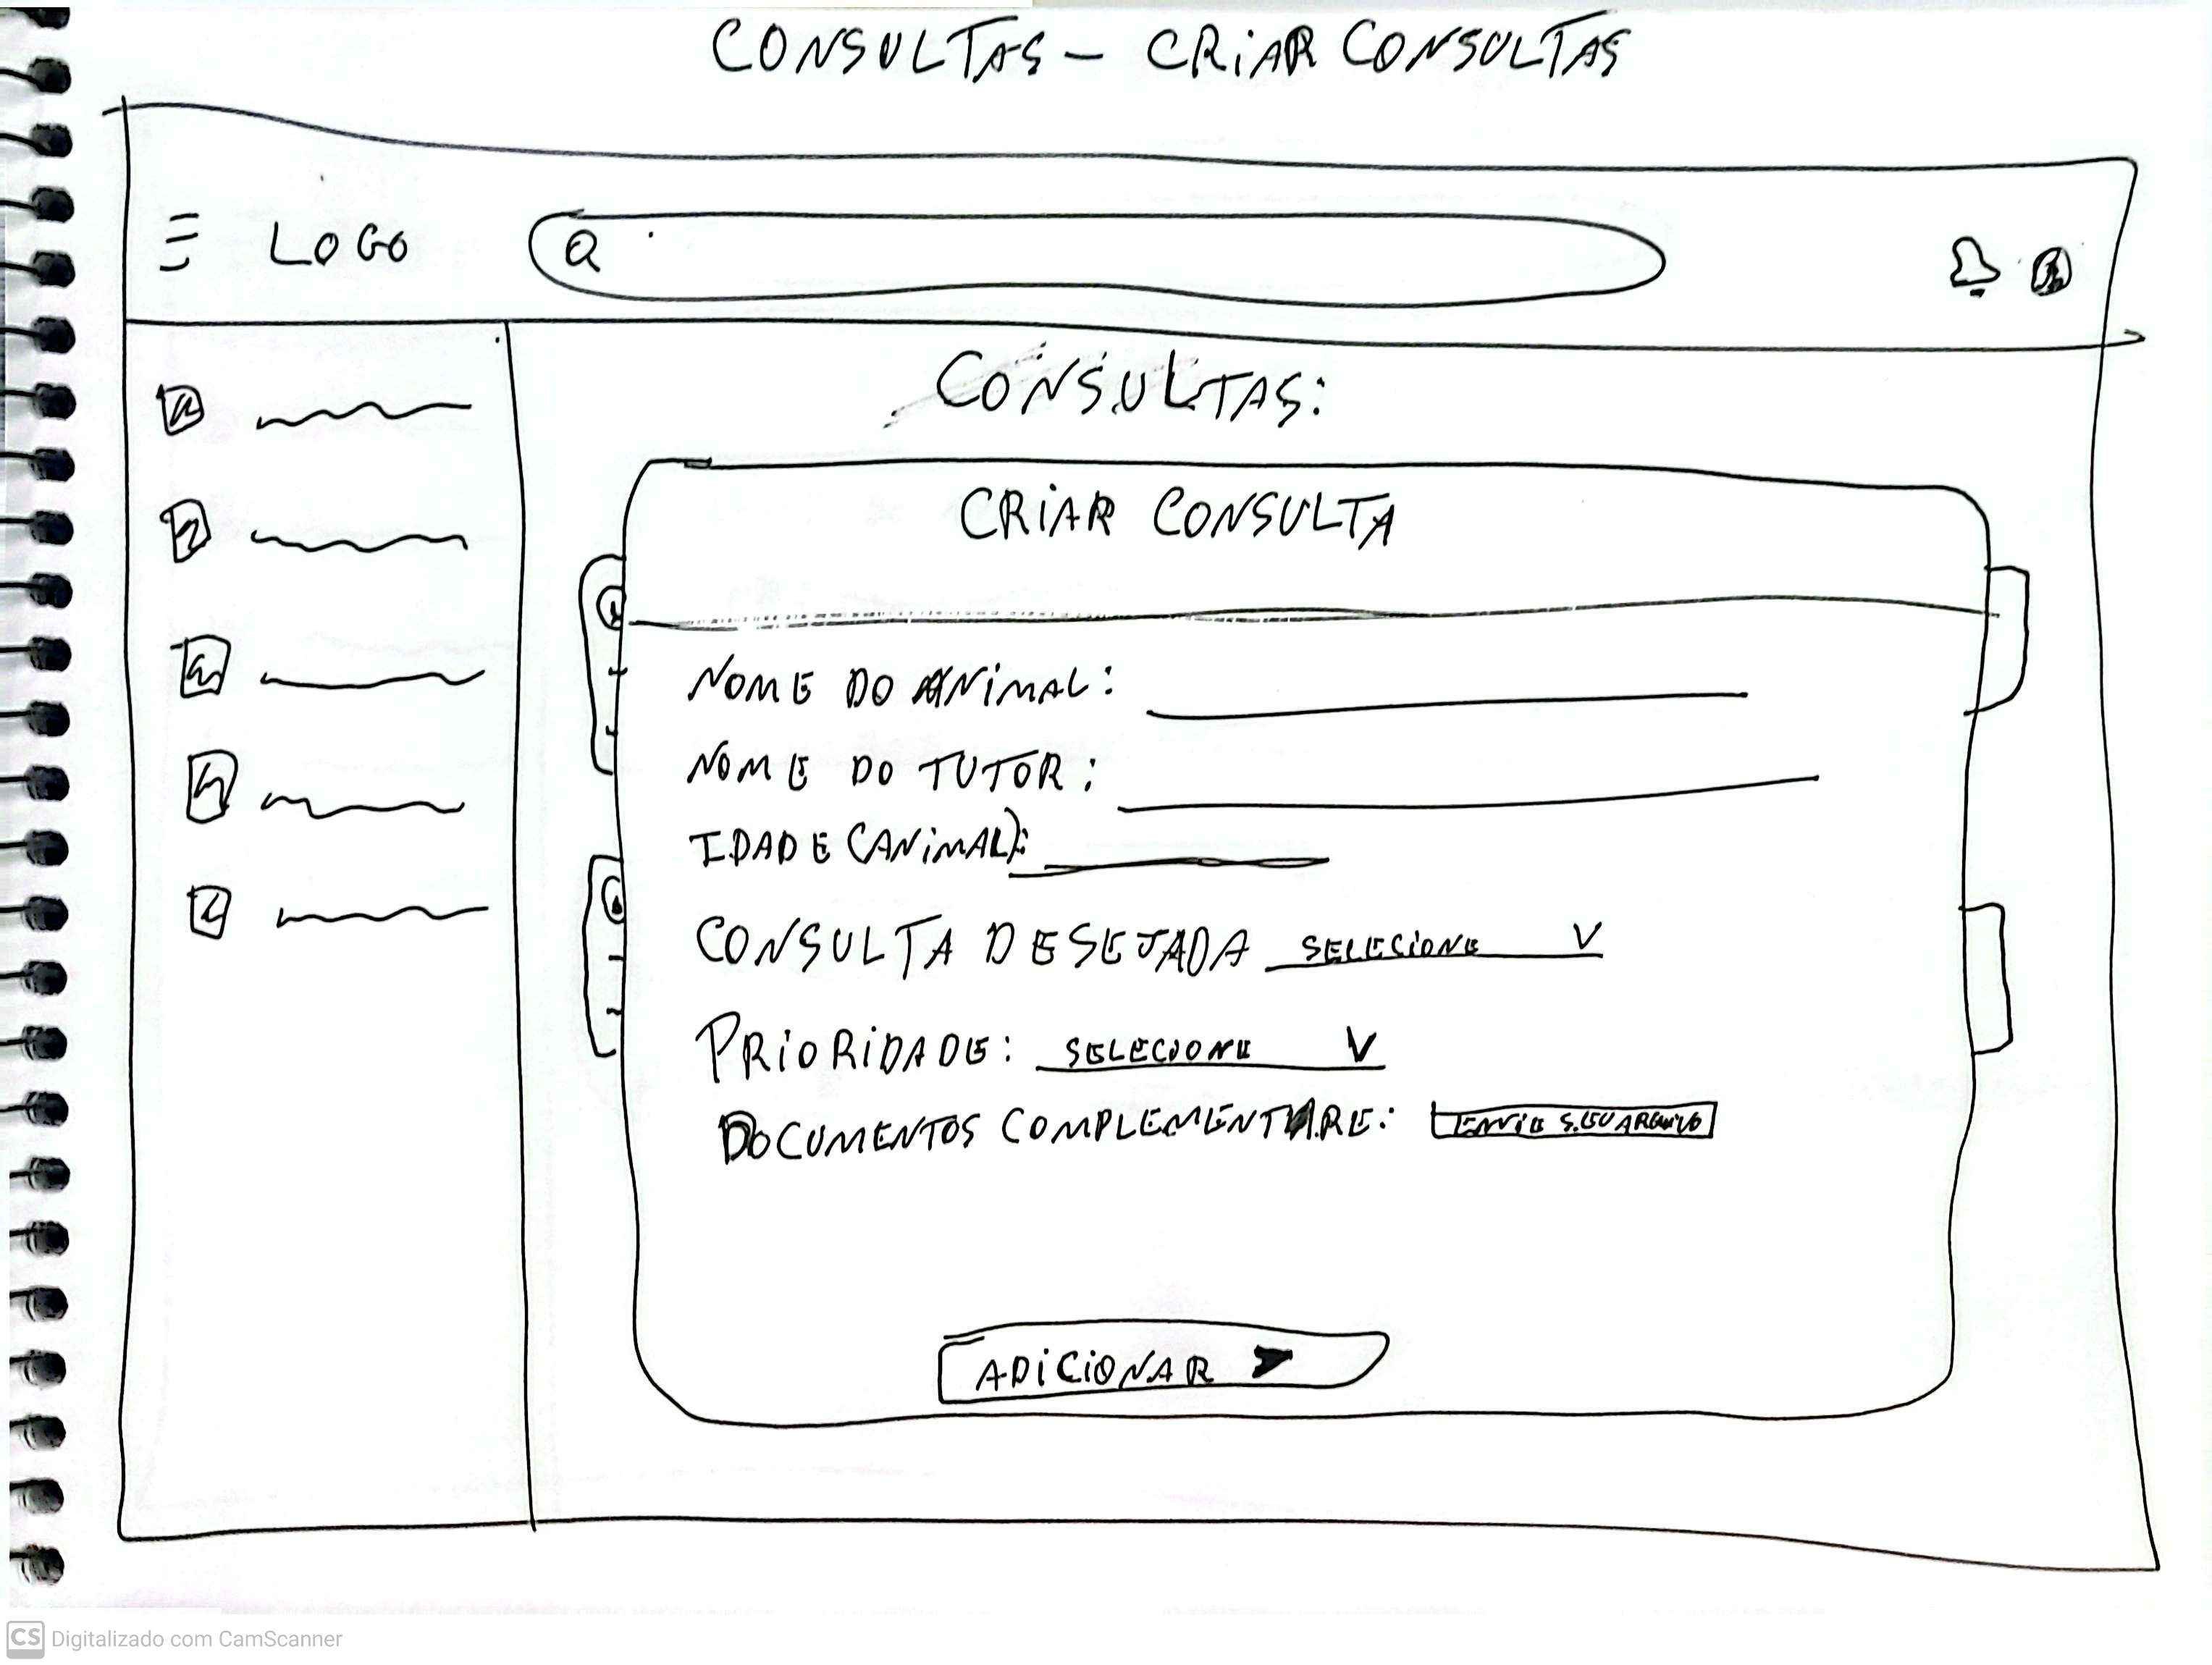 CONSULTAS - CRIAR CONSULTAS
LOGO
CONSULTAS:
CRIAR CONSULTA
NOME DO ANIMAL:
NOME DO TUTOR:
IDADE (ANIMAL):
CONSULTA DESEJADA SELECIONE V
PRIORIDADE: SELECIONE V
DOCUMENTOS COMPLEMENTARE: ENVIE SEU ARQUIVO
ADICIONAR ➤
CS Digitalizado com CamScanner